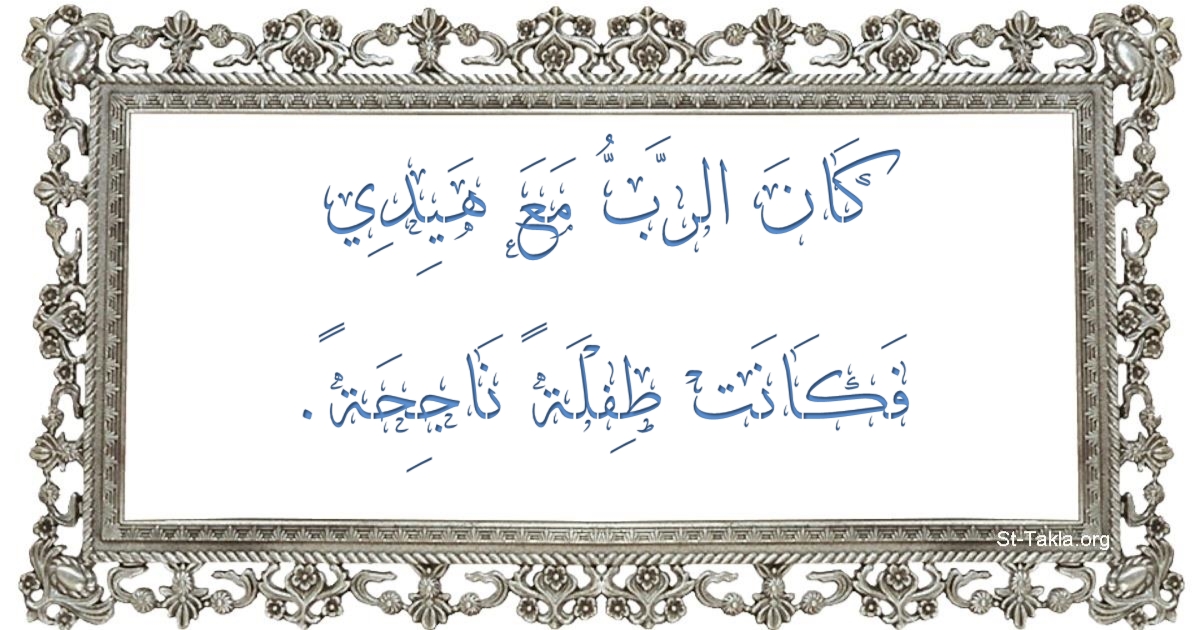 كَانَ الرَّبُّ مَعَ هَيِدِي
فَكَانَتْ طِفْلَةً نَاجِحَةً.
St-Takla.org